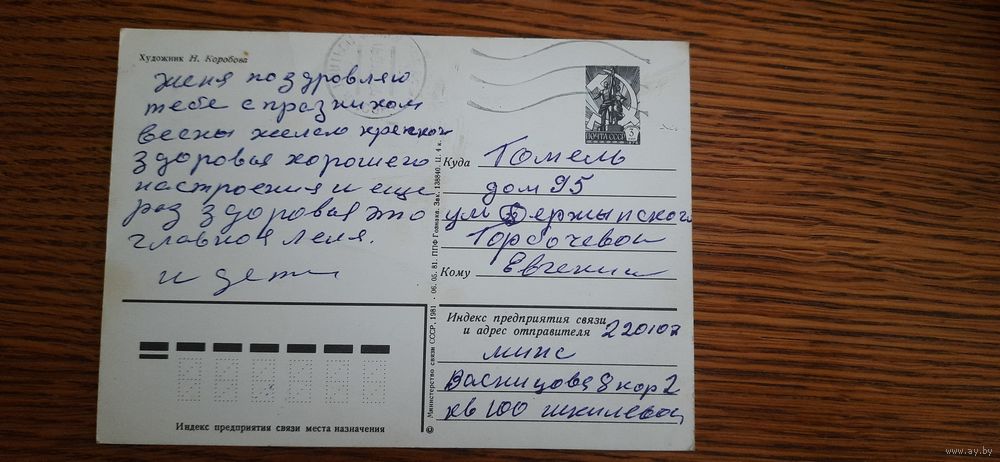 Художник Н. Коробова
женя поздровляю
тебе с празником
весны желаю крепкого
здоровья хорошего
настроения и ещё
раз здоровья это
главное леля.
и дети
ПОЧТА СССР
3
Куда Гомель
дом 95
ул Держынского
Горбочевой
Кому Евгении
Индекс предприятия связи
и адрес отправителя 220107
минс
Васницова 8 кор 2
кв 100 шкилевой
Индекс предприятия связи места назначения
© Министерство связи СССР, 1981 · 06. 05. 81. ППФ Гознака. Зак. 138840. Ц. 4 к.
www.ay.by